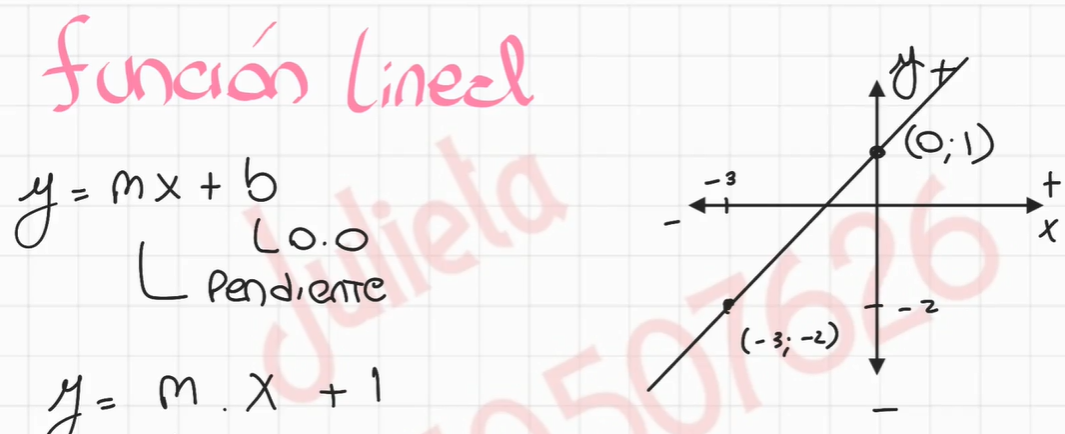 función lineal
y = mx + b
O.O
Pendiente
y = m . x + 1
y +
(0;1)
-3
+
-
x
-2
(-3;-2)
-
Julieta
507626